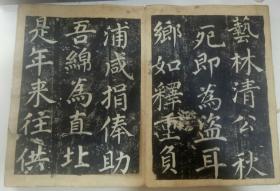 藝林清公秋
死即為盜耳
鄉如釋重負
浦咸捐俸助
吾綿為直北
是年来往供